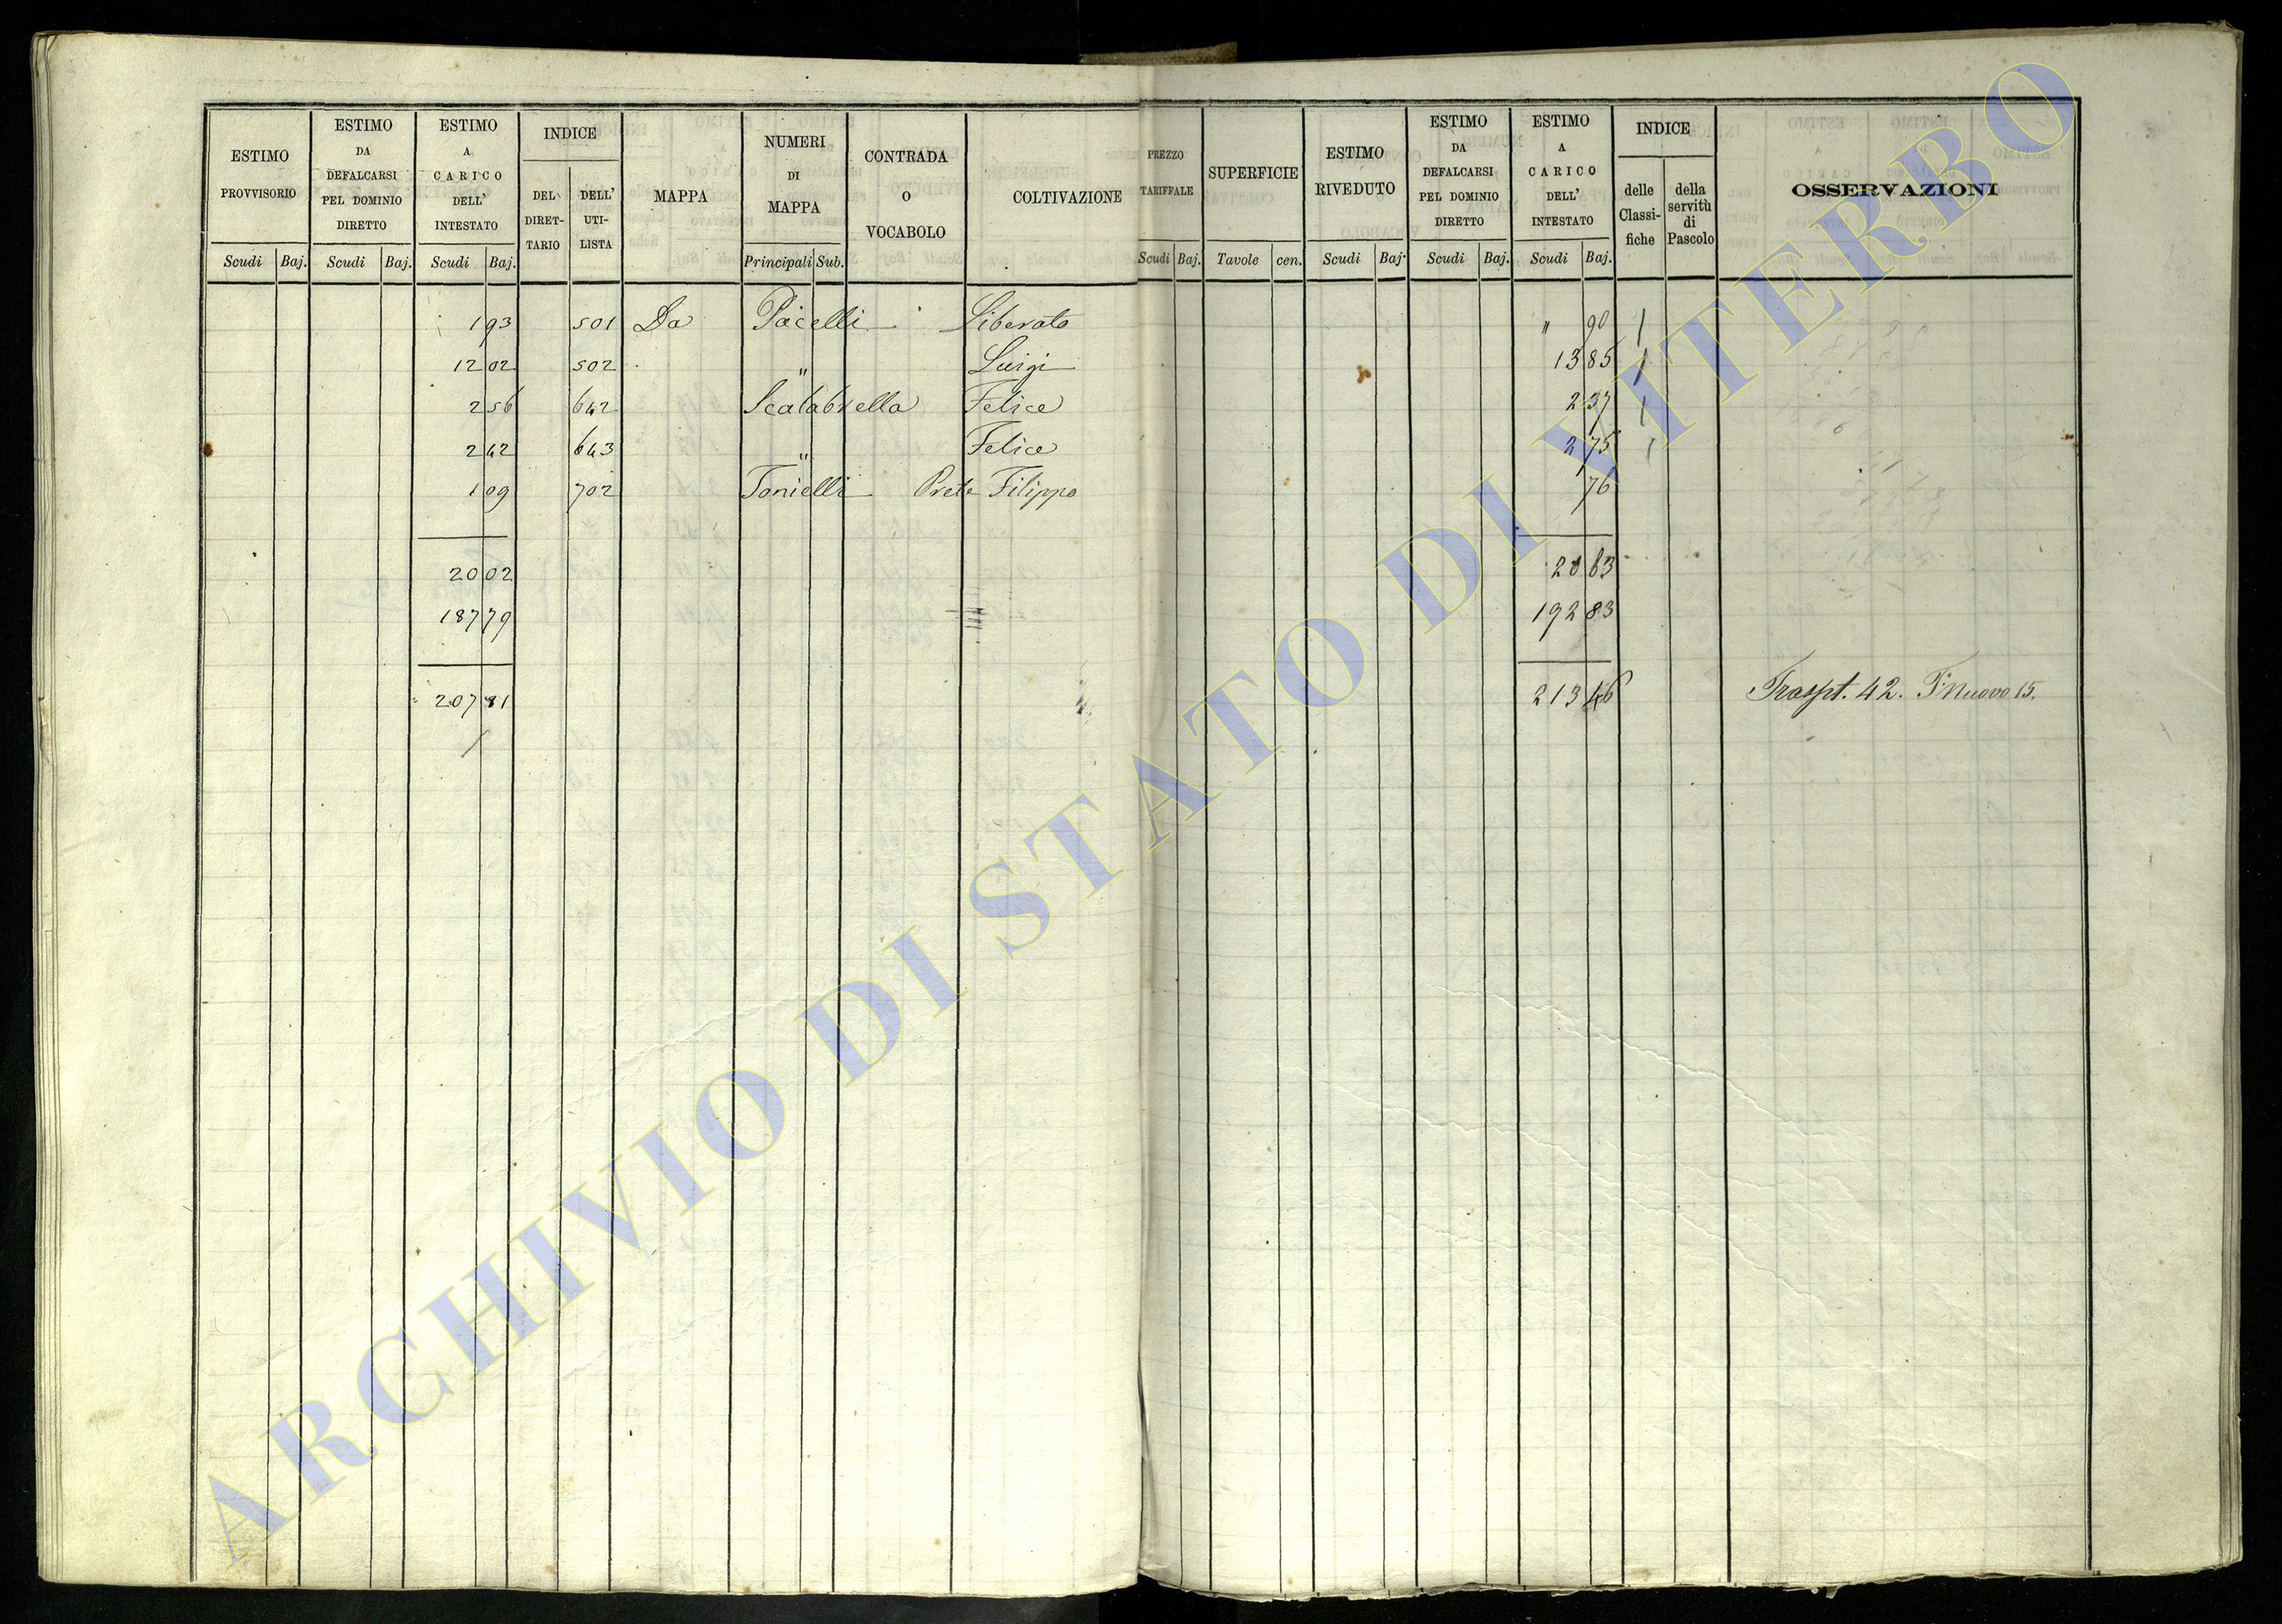 ESTIMO PROVVISORIO | ESTIMO DA DEFALCARSI PEL DOMINIO DIRETTO | ESTIMO A CARICO DELL' INTESTATO | INDICE | MAPPA | NUMERI DI MAPPA | CONTRADA O VOCABOLO | COLTIVAZIONE | PREZZO TARIFFALE | SUPERFICIE | ESTIMO RIVEDUTO | ESTIMO DA DEFALCARSI PEL DOMINIO DIRETTO | ESTIMO A CARICO DELL' INTESTATO | INDICE | OSSERVAZIONI
DEL DIRET-TARIO | DELL' UTI-LISTA | delle Classi-fiche | della servitù di Pascolo
Scudi | Baj. | Scudi | Baj. | Scudi | Baj. | Principali | Sub. | Scudi | Baj. | Tavole | cen. | Scudi | Baj. | Scudi | Baj. | Scudi | Baj.
1 93 501 Da Pacelli Liberato " 90
12 02 502 " Luigi 13 85
2 56 642 Scalabrella Felice 2 37
2 42 643 " Felice 2 75
1 09 702 Tonielli Prete Filippo 76
20 02 20 63
187 79 192 83
207 81 213 46 Traspt. 42. T. Nuovo 15.
ARCHIVIO DI STATO DI VITERBO